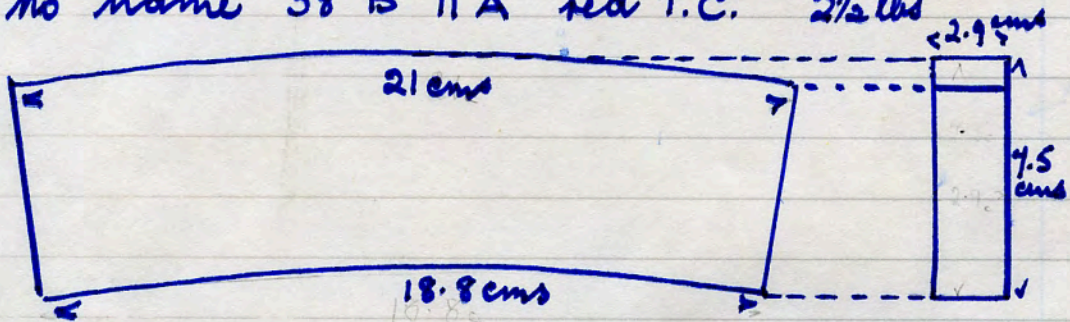 no name 58 B 11A red T.C. 2½ lbs
2.9 cms
21 cms
7.5
cms
18.8 cms